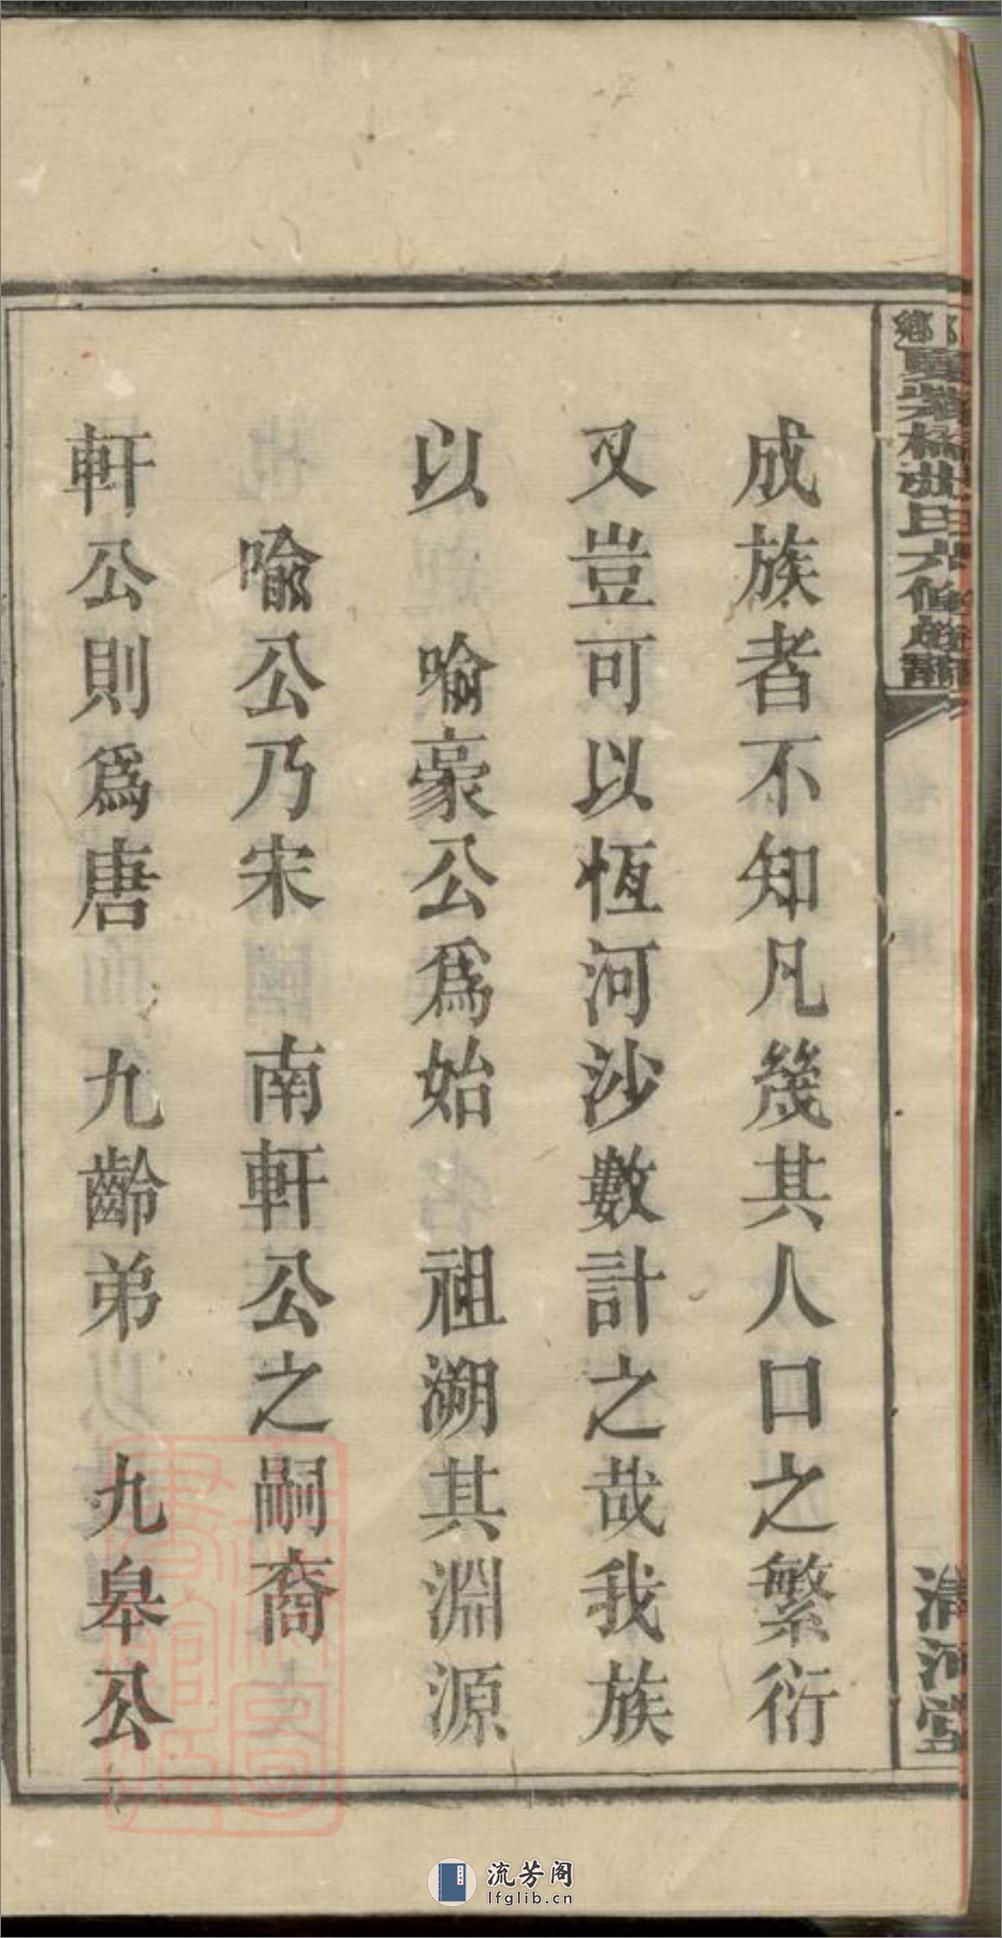 成族者不知凡幾其人口之繁衍
又豈可以恆河沙數計之哉我族
以　喻豪公爲始　祖溯其淵源
喻公乃宋　南軒公之嗣裔
軒公則爲唐　九齡弟　九皋公
清河堂
流芳阁
lfglib.cn